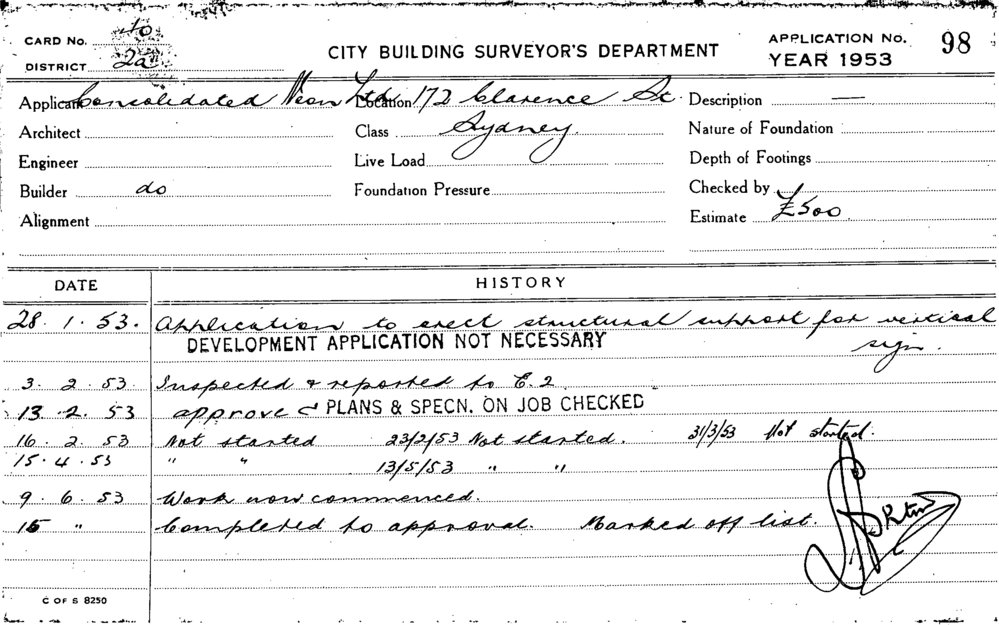 CARD No. to
DISTRICT 2a
CITY BUILDING SURVEYOR'S DEPARTMENT
APPLICATION No. 98
YEAR 1953
Applicant Consolidated Neon Ltd Location 172 Clarence St. Description —
Architect Class Sydney Nature of Foundation
Engineer Live Load Depth of Footings
Builder do Foundation Pressure Checked by
Alignment Estimate £500
DATE HISTORY
28. 1. 53. Application to erect structural support for vertical
sign.
DEVELOPMENT APPLICATION NOT NECESSARY
3. 2. 53 Inspected & reported to E.2
13. 2. 53 approve PLANS & SPECN. ON JOB CHECKED
16. 2. 53 Not started 23/2/53 Not started. 31/3/53 Not started.
15. 4. 53 " " 13/5/53 " "
9. 6. 53 Work now commenced.
15 " Completed to approval. Marked off list.
C OF S 8250